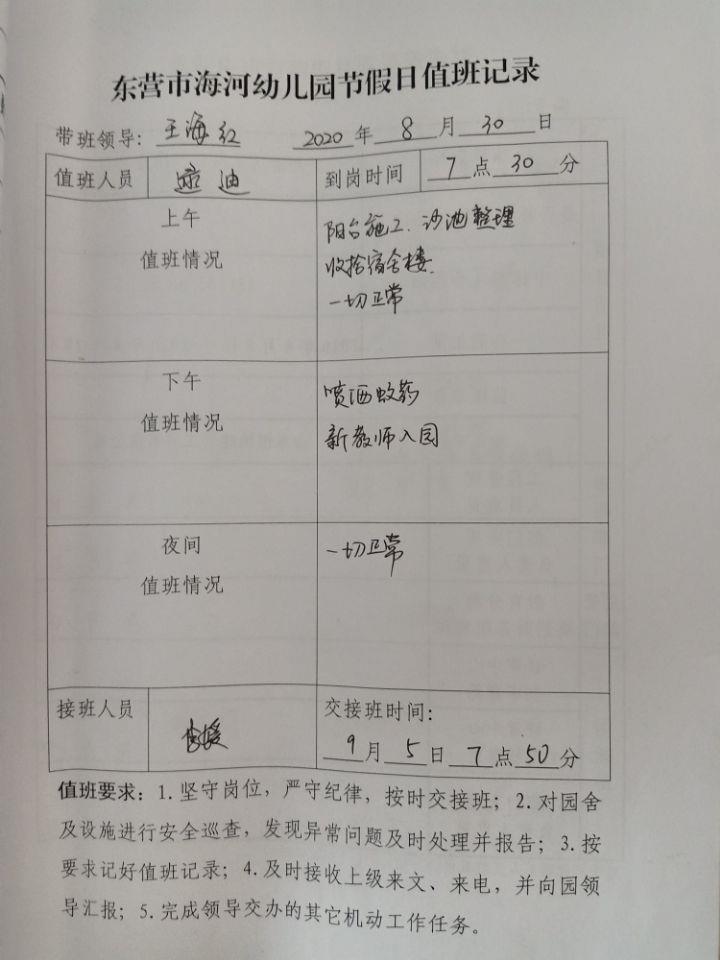 东营市海河幼儿园节假日值班记录
带班领导：王海红 2020年8月30日
值班人员 迪 到岗时间 7点30分
上午
值班情况
阳台施工、沙池整理
收拾宿舍楼.
一切正常
下午
值班情况
喷洒蚊药
新教师入园
夜间
值班情况
一切正常
接班人员
交接班时间：
9月5日7点50分
值班要求：1.坚守岗位，严守纪律，按时交接班；2.对园舍
及设施进行安全巡查，发现异常问题及时处理并报告；3.按
要求记好值班记录；4.及时接收上级来文、来电，并向园领
导汇报；5.完成领导交办的其它机动工作任务。